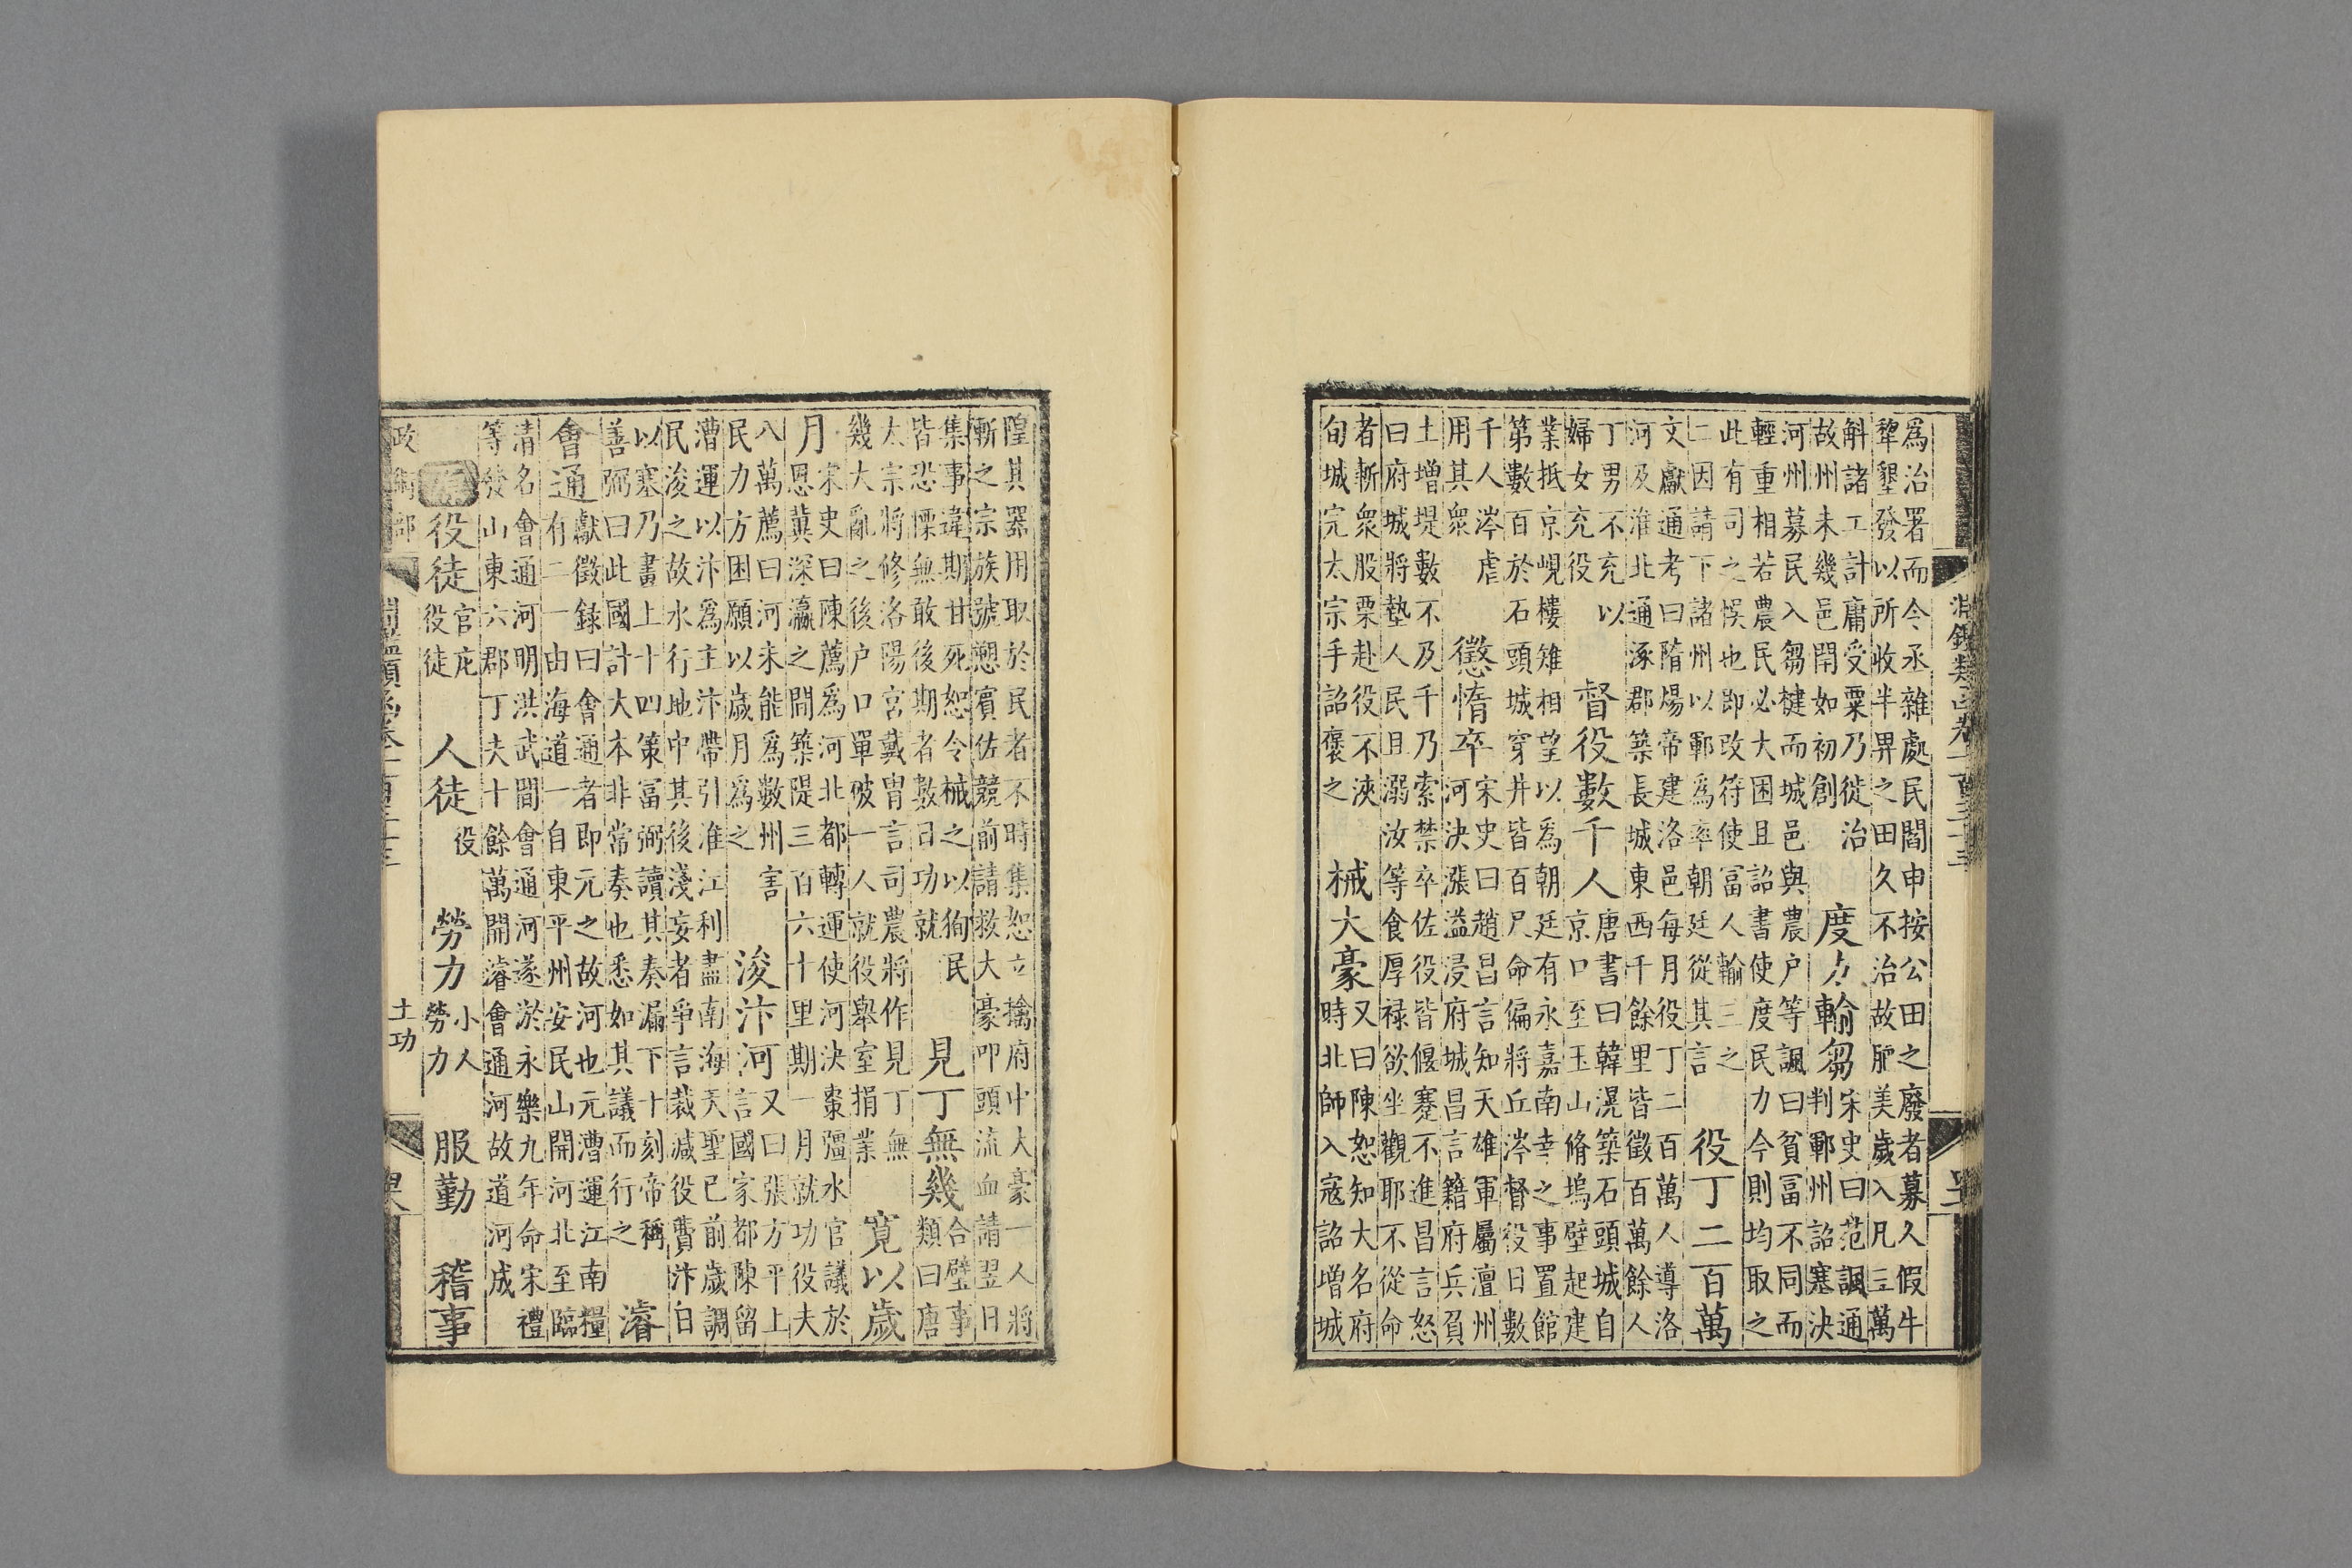 爲治署而今丞雜處民閒申按公田之廢者募人假牛
犂墾發以所收半畀之田久不治故肥美歲入凡三萬
斛諸工計庸受粟乃徙治
故州未幾邑閈如初創
度力輸芻
宋史曰范諷通
判鄆州詔塞決
河州募民入芻楗而城邑與農户等諷曰貧富不同而
輕重相若農民必大困且詔書使度民力今則均取之
此有司之悞也即改符使冨人輸三之
二因請下諸州以鄆爲率朝廷從其言
役丁二百萬
文獻通考曰隋煬帝建洛邑每月役丁二百萬人導洛
河及淮北通涿郡築長城東西千餘里皆徵百萬餘人
丁男不充以
婦女充役
督役數千人
唐書曰韓滉築石頭城自
京口至玉山脩塢壁起建
業抵京峴樓雉相望以爲朝廷有永嘉南幸之事置館
第數百於石頭城穿井皆百尺命偏將丘涔督役日數
千人涔虐
用其衆
懲惰卒
宋史曰趙昌言知天雄軍屬澶州
河決漲溢浸府城昌言籍府兵負
土增堤數不及千乃索禁卒佐役皆偃蹇不進昌言怒
曰府城將墊人民且溺汝等食厚禄欲坐觀耶不從命
者斬衆股栗赴役不浹
旬城完太宗手詔褒之
械大豪
又曰陳恕知大名府
時北師入寇詔增城
隍其器用取於民者不時集恕立擒府中大豪一人將
斬之宗族號愬賓佐競前請救大豪叩頭流血請翌日
集事違期甘死恕令械之以徇民
皆恐慄無敢後期者數日功就
見丁無幾
合璧事
類曰唐
太宗將修洛陽宮戴冑言司農將作見丁無
幾大亂之後户口單破一人就役舉室捐業
寛以歲
月
宋史曰陳薦爲河北都轉運使河決棗彊水官議於
恩冀深瀛之間築隄三百六十里期一月就功役夫
八萬薦曰河未能爲數州害
民力方困願以歲月爲之
浚汴河
又曰張方平上
言國家都陳留
漕運以汴爲主汴帶引淮江利盡南海天聖已前歲調
民浚之故水行地中其後淺妄者爭言裁減役費汴白
以塞乃畫上十四策富弼讀其奏漏下十刻帝稱
善弼曰此國計大本非常奏也悉如其議而行之
濬
會通
獻徵録曰會通者即元之故河也元漕運江南糧
有二一由海道一自東平州安民山開河北至臨
清名會通河明洪武間會通河遂淤永樂九年命宋禮
等發山東六郡丁夫十餘萬開濬會通河故道河成
役徒
官庀
役徒
人徒
役
勞力
小人
勞力
服勤
稽事
土功